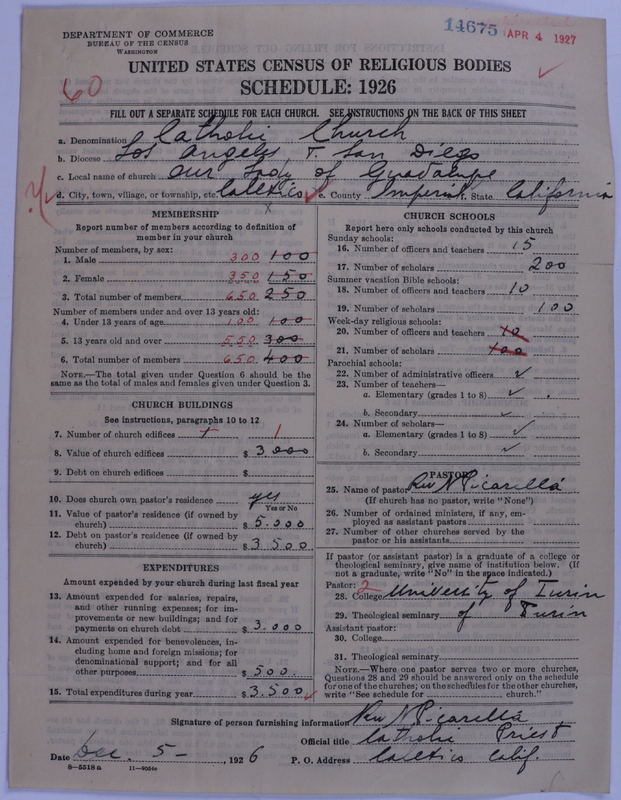 14675 APR 4 1927
DEPARTMENT OF COMMERCE
BUREAU OF THE CENSUS
WASHINGTON
UNITED STATES CENSUS OF RELIGIOUS BODIES
SCHEDULE: 1926
60
FILL OUT A SEPARATE SCHEDULE FOR EACH CHURCH. SEE INSTRUCTIONS ON THE BACK OF THIS SHEET
a. Denomination Catholic Church
b. Diocese Los Angeles & San Diego
c. Local name of church Our Lady of Guadalupe
d. City, town, village, or township, etc. Calexico e. County Imperial State California
MEMBERSHIP
Report number of members according to definition of
member in your church
Number of members, by sex:
1. Male 300 100
2. Female 350 150
3. Total number of members 650 250
Number of members under and over 13 years old:
4. Under 13 years of age 100 100
5. 13 years old and over 550 300
6. Total number of members 650 400
NOTE.—The total given under Question 6 should be the
same as the total of males and females given under Question 3.
CHURCH BUILDINGS
See instructions, paragraphs 10 to 12
7. Number of church edifices 1 1
8. Value of church edifices $ 3000
9. Debt on church edifices $
10. Does church own pastor's residence yes
Yes or No
11. Value of pastor's residence (if owned by
church) $ 5.000
12. Debt on pastor's residence (if owned by
church) $ 3500
EXPENDITURES
Amount expended by your church during last fiscal year
13. Amount expended for salaries, repairs,
and other running expenses; for im-
provements or new buildings; and for
payments on church debt $ 3.000
14. Amount expended for benevolences, in-
cluding home and foreign missions; for
denominational support; and for all
other purposes $ 500
15. Total expenditures during year $ 3.500
CHURCH SCHOOLS
Report here only schools conducted by this church
Sunday schools:
16. Number of officers and teachers 15
17. Number of scholars 200
Summer vacation Bible schools:
18. Number of officers and teachers 10
19. Number of scholars 100
Week-day religious schools:
20. Number of officers and teachers 10
21. Number of scholars 100
Parochial schools:
22. Number of administrative officers
23. Number of teachers—
a. Elementary (grades 1 to 8)
b. Secondary
24. Number of scholars—
a. Elementary (grades 1 to 8)
b. Secondary
PASTOR
25. Name of pastor Rev N Picarella
(If church has no pastor, write "None")
26. Number of ordained ministers, if any, em-
ployed as assistant pastors
27. Number of other churches served by the
pastor or his assistants
If pastor (or assistant pastor) is a graduate of a college or
theological seminary, give name of institution below. (If
not a graduate, write "No" in the space indicated.)
Pastor: 2
28. College University of Turin
29. Theological seminary of Turin
Assistant pastor:
30. College
31. Theological seminary
NOTE.—Where one pastor serves two or more churches,
Questions 28 and 29 should be answered only on the schedule
for one of the churches; on the schedules for the other churches,
write "See schedule for church."
Signature of person furnishing information Rev N Picarella
Official title Catholic Priest
Date Dec. 5- , 1926 P. O. Address Calexico Calif.
8—5518 a 11—9054c